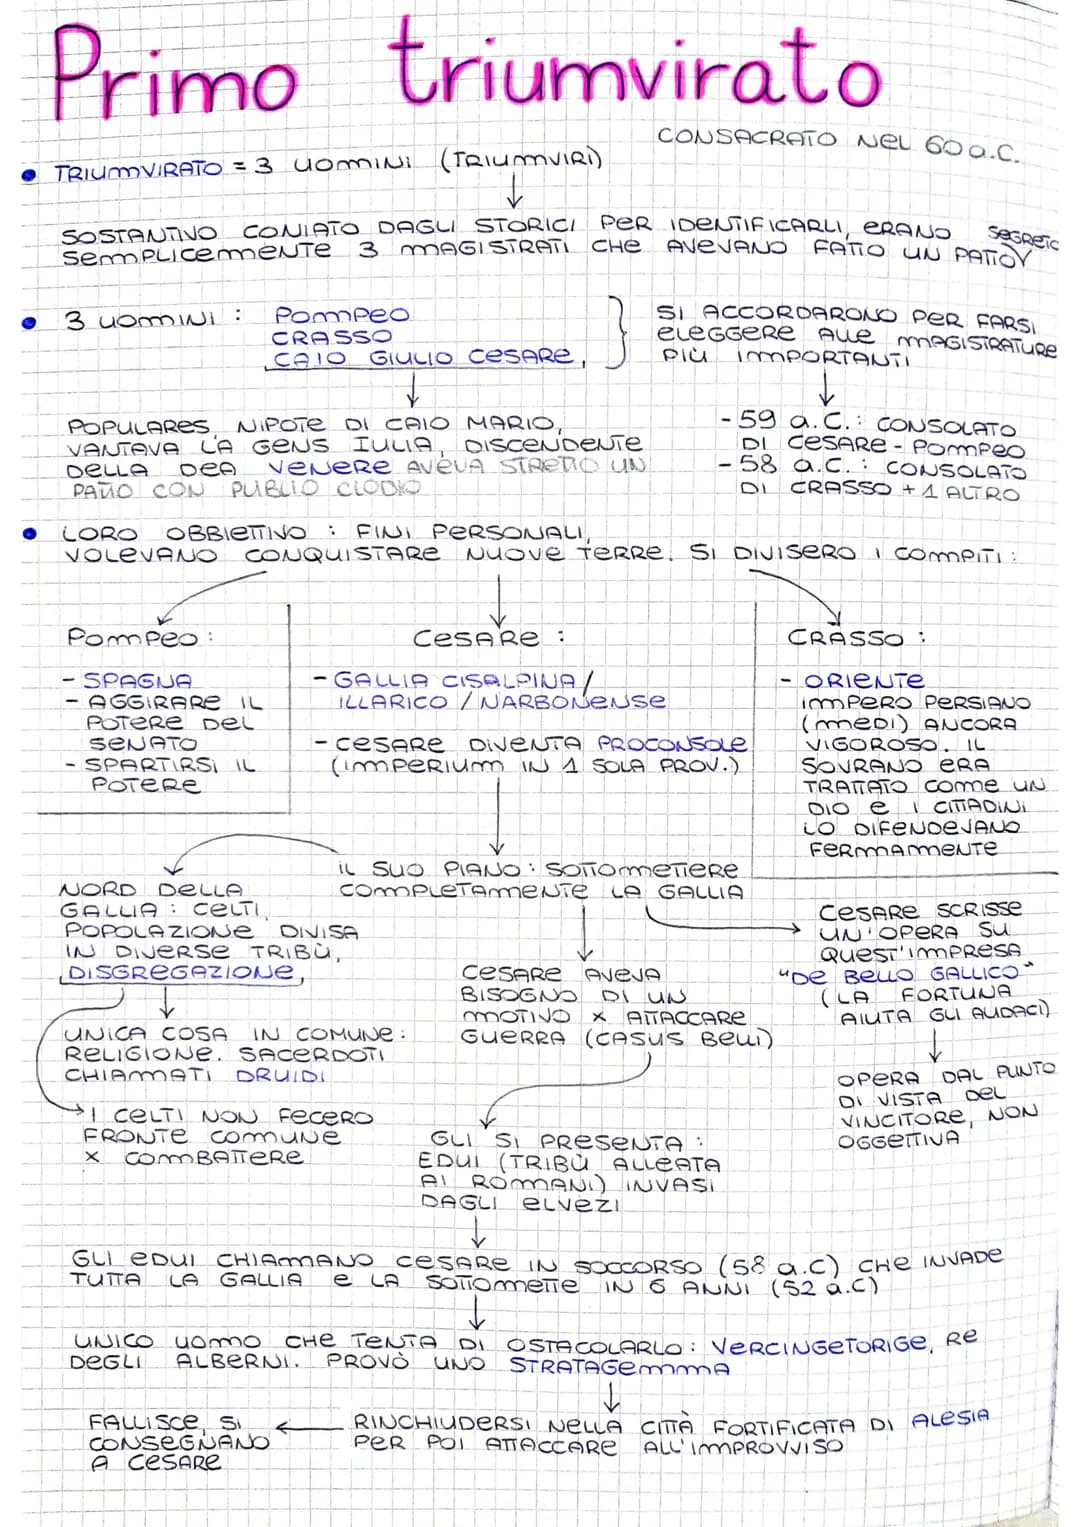 Primo triumvirato
CONSACRATO NEL 60 a.C.
• TRIUMVIRATO = 3 UOMINI (TRIUMVIRI)
SOSTANTIVO CONIATO DAGLI STORICI PER IDENTIFICARLI, ERANO
SEMPLICEMENTE 3 MAGISTRATI CHE AVEVANO FATTO UN PATTO SEGRETO
• 3 UOMINI : POMPEO
CRASSO
CAIO GIULIO CESARE,
SI ACCORDARONO PER FARSI
ELEGGERE ALLE MAGISTRATURE
PIÙ IMPORTANTI
POPULARES, NIPOTE DI CAIO MARIO,
VANTAVA LA GENS IULIA, DISCENDENTE
DELLA DEA VENERE AVEVA STRETTO UN
PATTO CON PUBLIO CLODIO
- 59 a.C.: CONSOLATO
DI CESARE - POMPEO
- 58 a.C.: CONSOLATO
DI CRASSO + 1 ALTRO
• LORO OBBIETTIVO : FINI PERSONALI,
VOLEVANO CONQUISTARE NUOVE TERRE. SI DIVISERO I COMPITI :
POMPEO :
- SPAGNA
- AGGIRARE IL
POTERE DEL
SENATO
- SPARTIRSI IL
POTERE
CESARE :
- GALLIA CISALPINA /
ILLARICO / NARBONENSE
- CESARE DIVENTA PROCONSOLE
(IMPERIUM IN 1 SOLA PROV.)
CRASSO :
- ORIENTE
IMPERO PERSIANO
(MEDI) ANCORA
VIGOROSO. IL
SOVRANO ERA
TRATTATO COME UN
DIO E I CITTADINI
LO DIFENDEVANO
FERMAMENTE
IL SUO PIANO : SOTTOMETTERE
COMPLETAMENTE LA GALLIA
NORD DELLA
GALLIA : CELTI,
POPOLAZIONE DIVISA
IN DIVERSE TRIBÙ,
DISGREGAZIONE,
UNICA COSA IN COMUNE :
RELIGIONE. SACERDOTI
CHIAMATI DRUIDI
I CELTI NON FECERO
FRONTE COMUNE
x COMBATTERE
CESARE AVEVA
BISOGNO DI UN
MOTIVO x ATTACCARE
GUERRA (CASUS BELLI)
CESARE SCRISSE
UN'OPERA SU
QUEST'IMPRESA
"DE BELLO GALLICO"
(LA FORTUNA
AIUTA GLI AUDACI)
OPERA DAL PUNTO
DI VISTA DEL
VINCITORE, NON
OGGETTIVA
GLI SI PRESENTA :
EDUI (TRIBÙ ALLEATA
AI ROMANI) INVASI
DAGLI ELVEZI
GLI EDUI CHIAMANO CESARE IN SOCCORSO (58 a.C) CHE INVADE
TUTTA LA GALLIA E LA SOTTOMETTE IN 6 ANNI (52 a.C)
UNICO UOMO CHE TENTA DI OSTACOLARLO : VERCINGETORIGE, RE
DEGLI ALBERNI. PROVÒ UNO STRATAGEMMA
RINCHIUDERSI NELLA CITTÀ FORTIFICATA DI ALESIA
PER POI ATTACCARE ALL'IMPROVVISO
FALLISCE, SI
CONSEGNANO
A CESARE